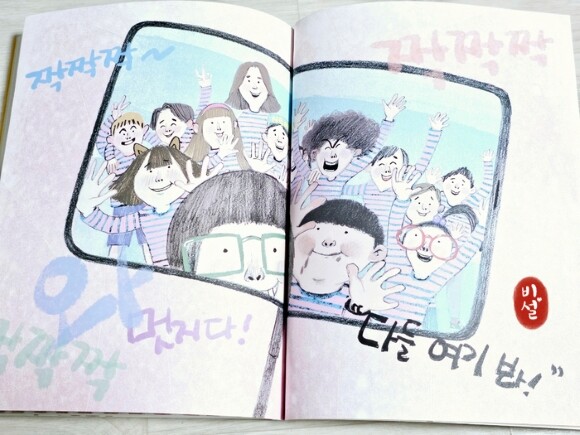 짝짝짝~
짝짝짝
와
멋지다!
짝짝짝
비설
"다들 여기 봐!"